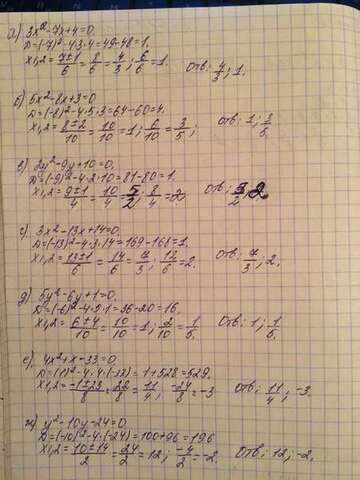 а) 3x²-7x+4=0.
D=(-7)²-4·3·4=49-48=1.
x1,2=7±1/6=8/6=4/3; 6/6=1. Отв: 4/3; 1.
б) 5x²-8x+3=0
D=(-8)²-4·5·3=64-60=4.
x1,2=8±2/10=10/10=1; 6/10=3/5; Отв: 1; 3/5.
в) 2y²-9y+10=0.
D=(-9)²-4·2·10=81-80=1.
x1,2=9±1/4=10/4=5/2; 8/4=2. Отв: 5/2; 2
г) 3x²-13x+14=0.
D=(-13)²-4·3·14=169-168=1.
x1,2=13±1/6=14/6=7/3; 12/6=2. Отв: 7/3; 2.
д) 5y²-6y+1=0.
D=(-6)²-4·5·1=36-20=16.
x1,2=6±4/10=10/10=1; 2/10=1/5. Отв: 1; 1/5.
е) 4x²+x-33=0.
D=(1)²-4·4·(-33)=1+528=529.
x1,2=-1±23/8=22/8=11/4; -24/8=-3 Отв: 11/4; -3.
ж) y²-10y-24=0.
D=(-10)²-4·(-24)=100+96=196
x1,2=10±14/2=24/2=12; -4/2=-2. Отв: 12; -2.